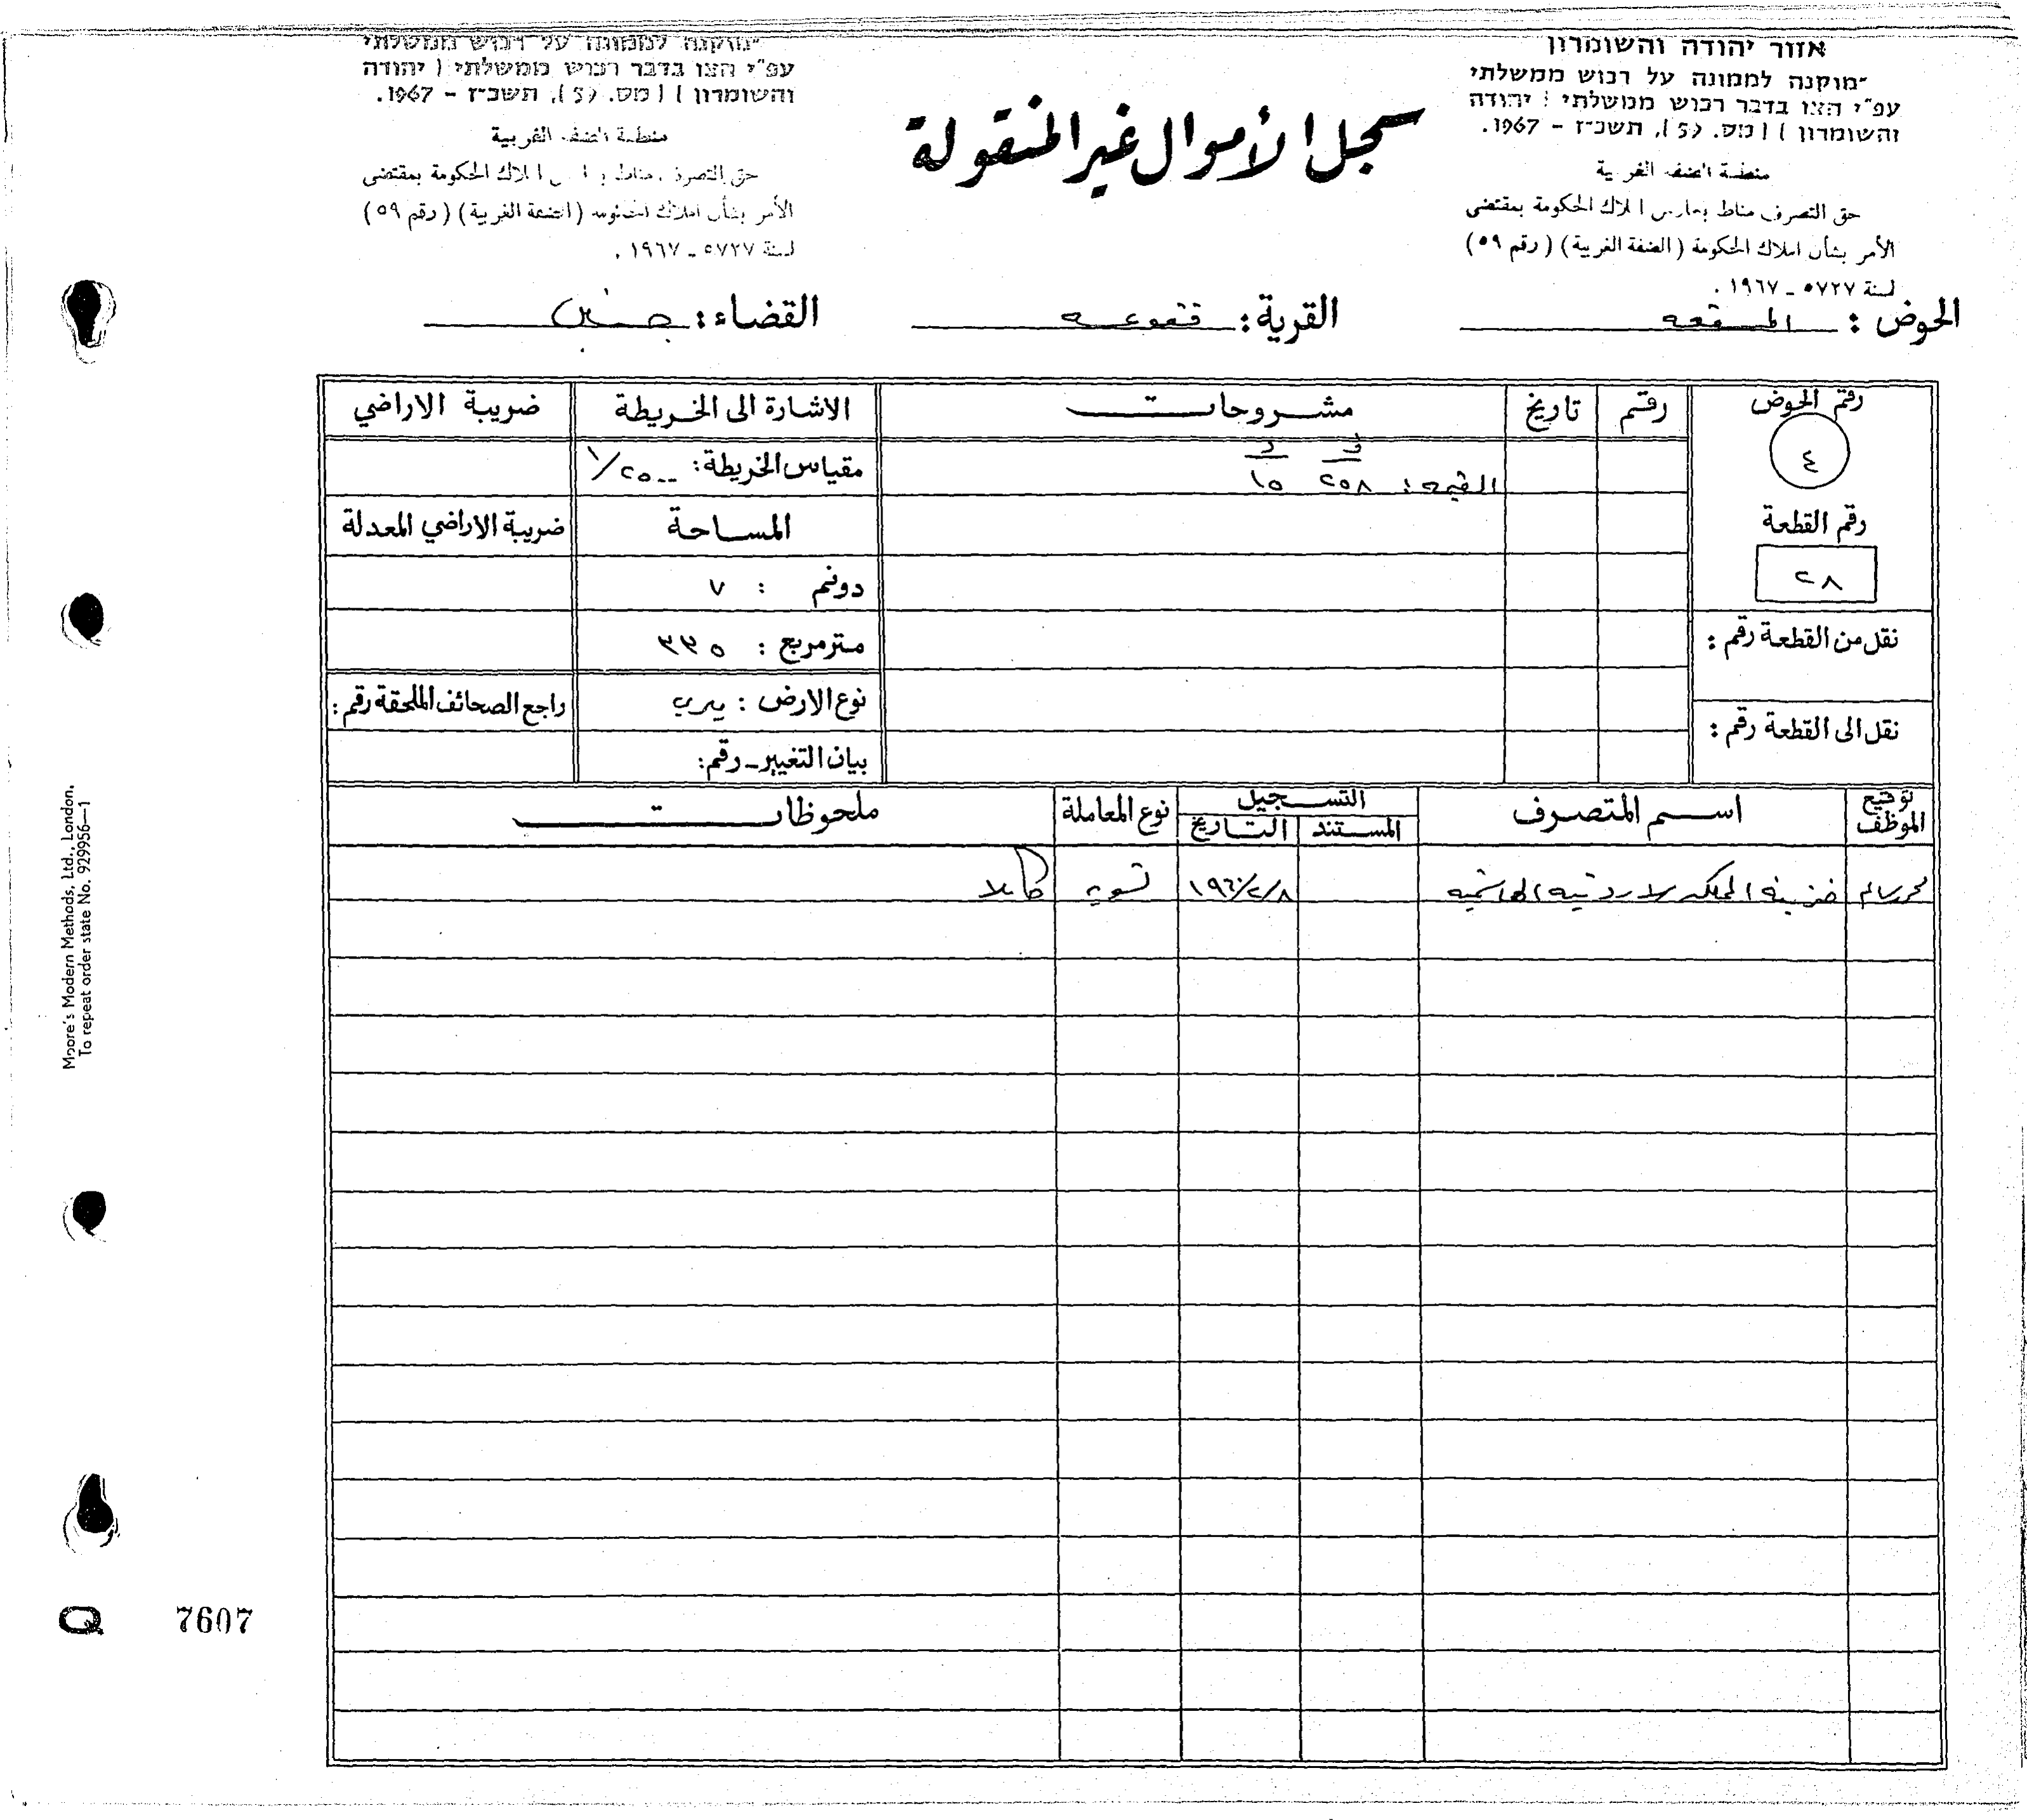 אזור יהודה והשומרון
"מוקנה לממונה על רכוש ממשלתי
עפ"י הצו בדבר רכוש ממשלתי ( יהודה
והשומרון ) ( מס. 59 ), תשכ"ז - 1967.
منطقة الضفة الغربية
حق التصرف مناط بحارس املاك الحكومة بمقتضى
الأمر بشأن املاك الحكومة (الضفة الغربية) (رقم ٥٩)
لسنة ٥٧٢٧ - ١٩٦٧ .
"מוקנה לממונה על רכוש ממשלתי
עפ"י הצו בדבר רכוש ממשלתי ( יהודה
והשומרון ) ( מס. 59 ), תשכ"ז - 1967.
منطقة الضفة الغربية
حق التصرف مناط املاك الحكومة بمقتضى
الأمر بشأن املاك الحكومة (الضفة الغربية) (رقم ٥٩)
لسنة ٥٧٢٧ - ١٩٦٧ .
سجل الأموال غير المنقولة
الحوض : القرية: فقوعه القضاء: جنين
رقم الحوض رقم تاريخ مشروحات الاشارة الى الخريطة ضريبة الاراضي
٤
ف د
القيمه : ٢٥٨ ١٥
مقياس الخريطة: ١/٢٥٠٠
رقم القطعة المساحة ضريبة الاراضي المعدلة
٢٨
دونم : ٧
نقل من القطعة رقم :
متر مربع : ٣٣٥
نوع الارض : ميري راجع الصحائف الملحقة رقم :
نقل الى القطعة رقم :
بيان التغيير - رقم:
توقيع الموظف اسم المتصرف التسجيل نوع المعاملة ملحوظات
المستند التاريخ
خزينة المملكة الاردنيه الهاشميه ١٩٦٠/٢/٨ تسويه كاملا
Moore's Modern Methods, Ltd., London.
To repeat order state No. 929956—1
Q 7607